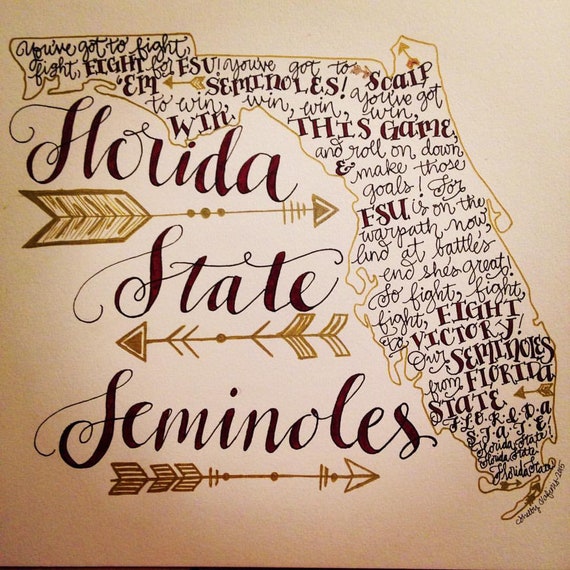 You've got to fight,
fight, FIGHT for FSU! You've got to
'EM SEMINOLES! SCALP
to win, win, win, You've got
WIN THIS GAME,
win,
and roll on down
& make those
goals! For
FSU is on the
warpath now,
And at battles
end she's great!
So fight, fight,
fight, FIGHT
to VICTORY!
Our SEMINOLES
from FLORIDA
STATE
F·L·O·R·I·D·A
S·T·A·T·E
Florida State!
Florida State
Florida State
Florida
State
Seminoles
Shelby 2015